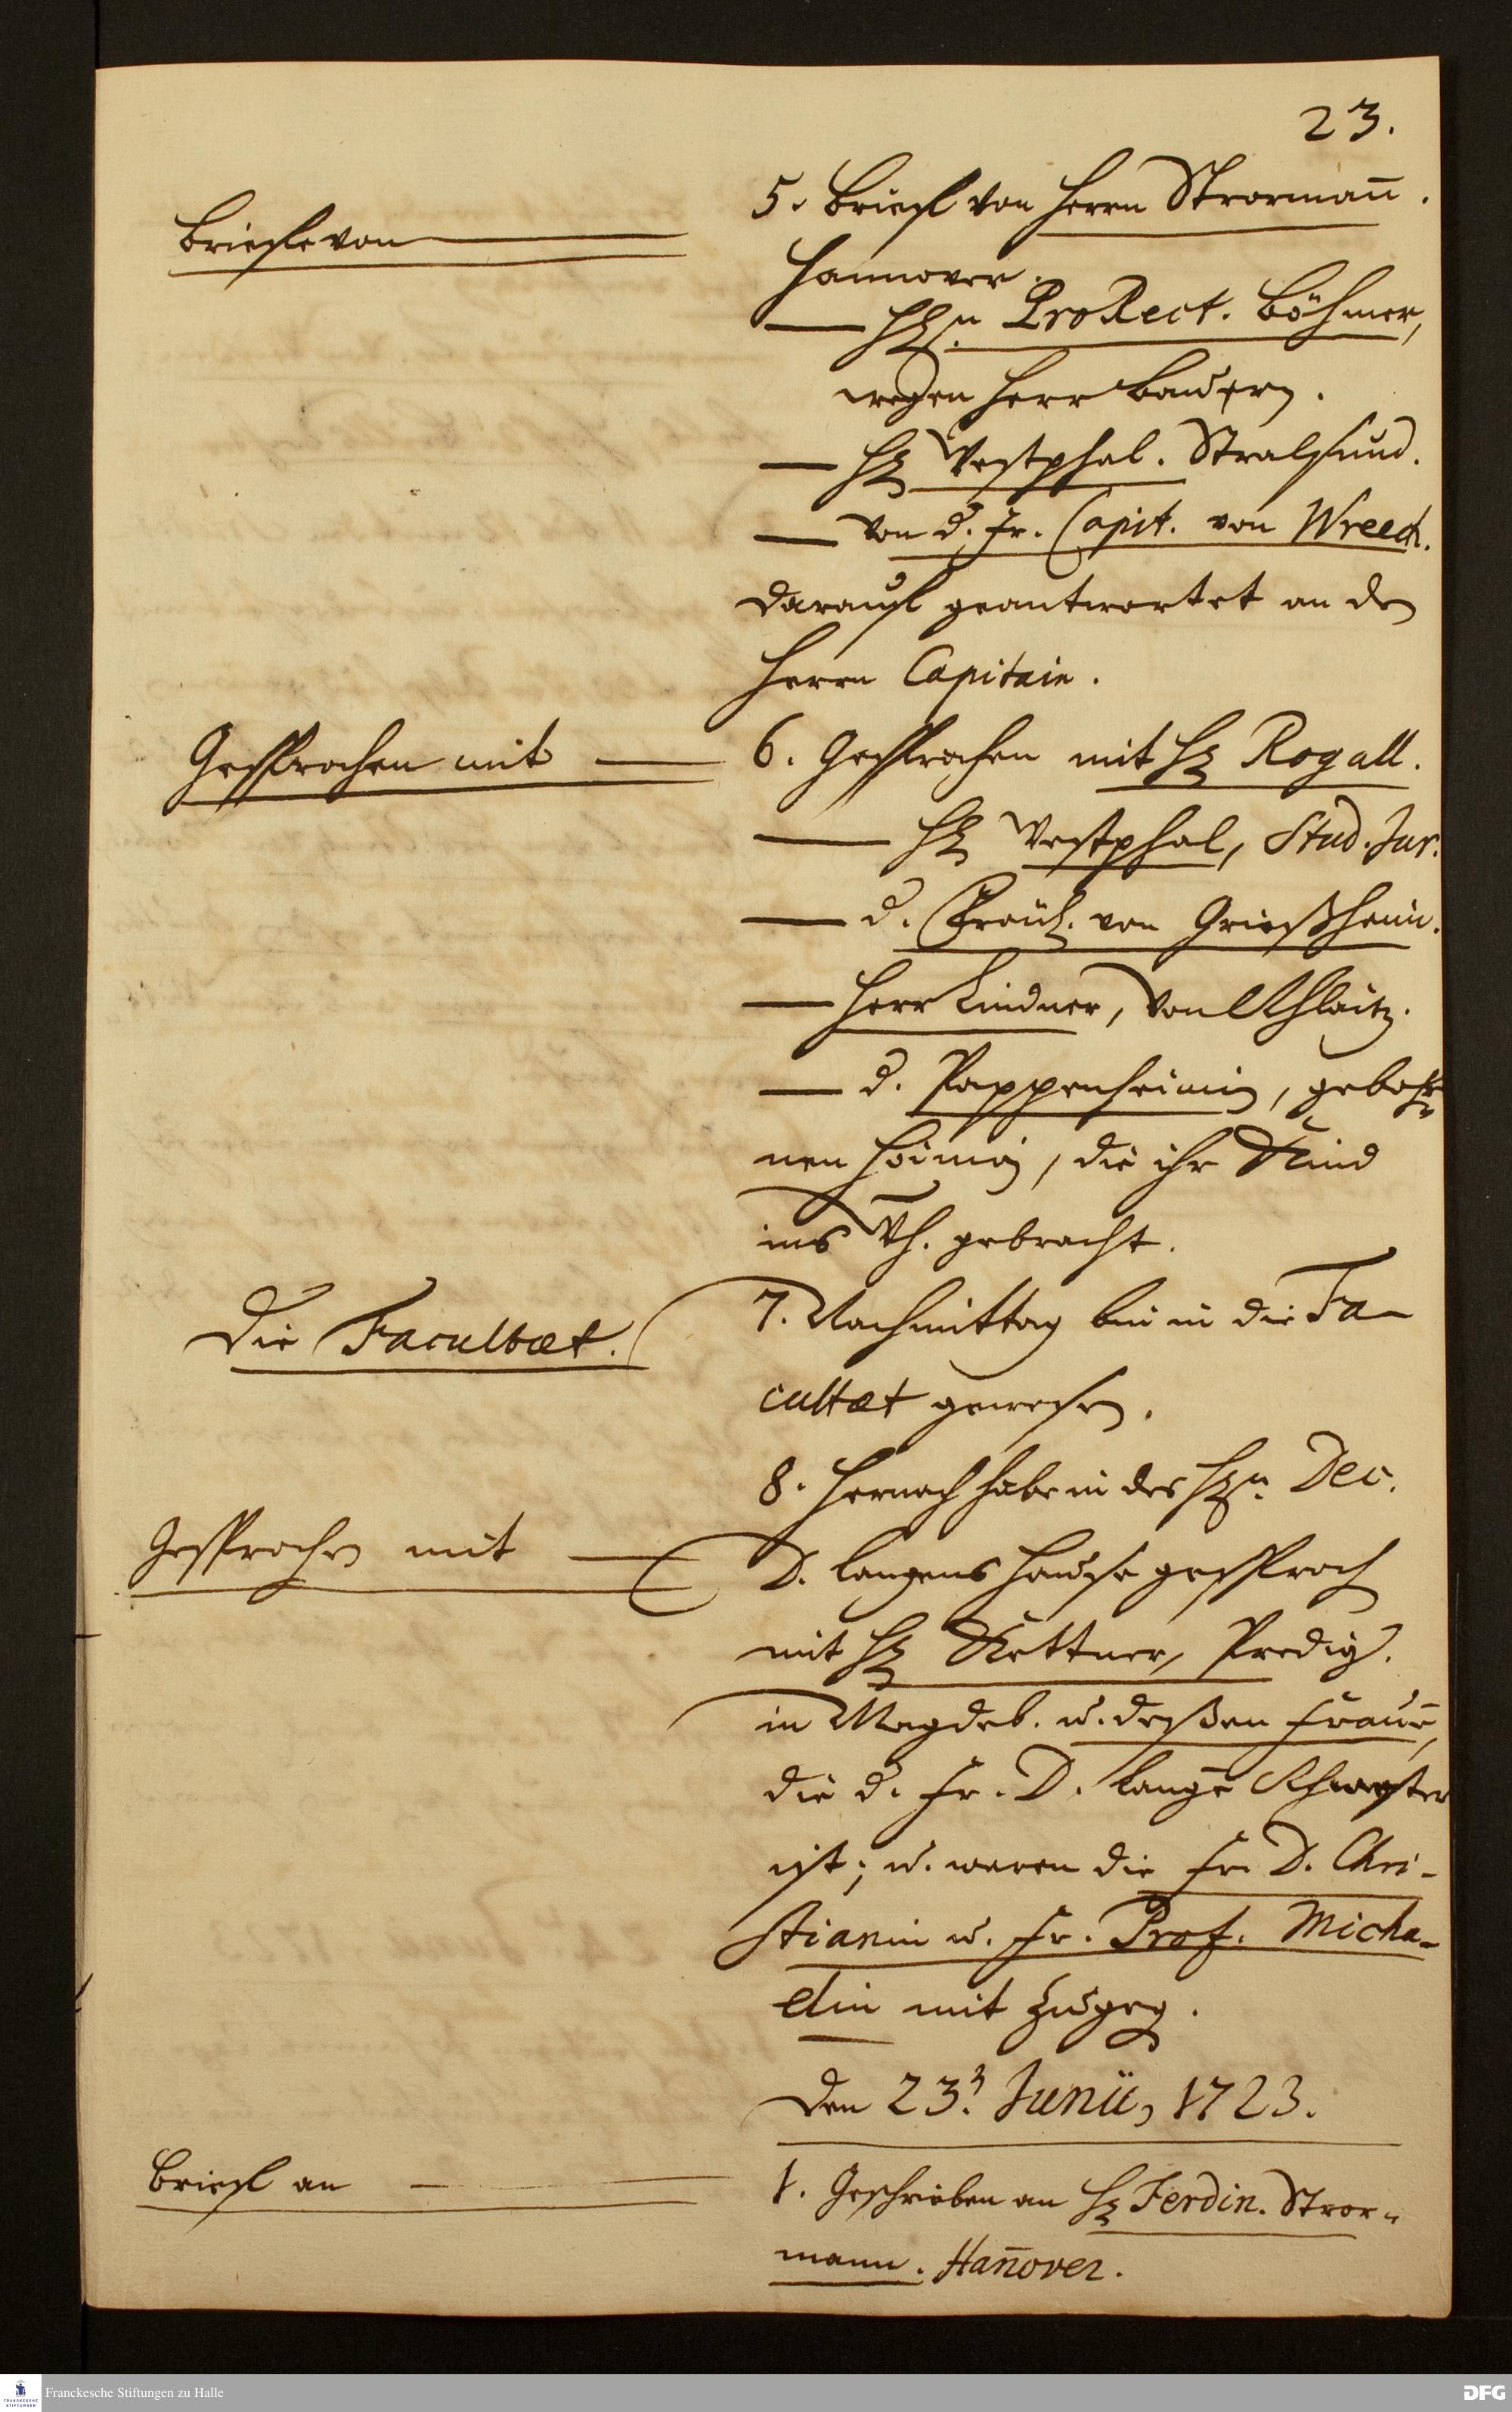 23.
Briefe von
5. Brief von Herrn Strorman̄.
Hannover.
Hrn. ProRect. Böhmer,
wegen Herr Bauern.
Hr Westphal. Stralsund.
von d. Fr. Capit. von Wreech.
darauf geantwortet an den
Herrn Capitain.
Gesprochen mit
6. Gesprochen mit Hr Rogall.
Hr Westphal, Stud. Jur.
d. Fräul. von Grießheim.
Herr Lindner, von Schlaitz.
d. Pappenheimin, gebohr
nen, die ihr Kind
ins Wh. gebracht.
Die Facultæt.
7. Nachmittag bin in die Fa-
cultæt gewesen.
8. Hernach habe in des Hrn. Dec.
Gesprochen mit
D. Langens Hause gesproch
mit Hr Kettner, Predig.
in Magdeb. u. deßen Frauē,
die d. Fr. D. Langē Schwester
ist; u. waren die Fr. D. Chri-
stianin u. Fr. Prof. Micha-
elin mit zugeg.
Den 23. Junii, 1723.
Brief an
1. Geschrieben an Hr Ferdin. Stror-
mann. Han̄over.
Franckesche Stiftungen zu Halle
DFG